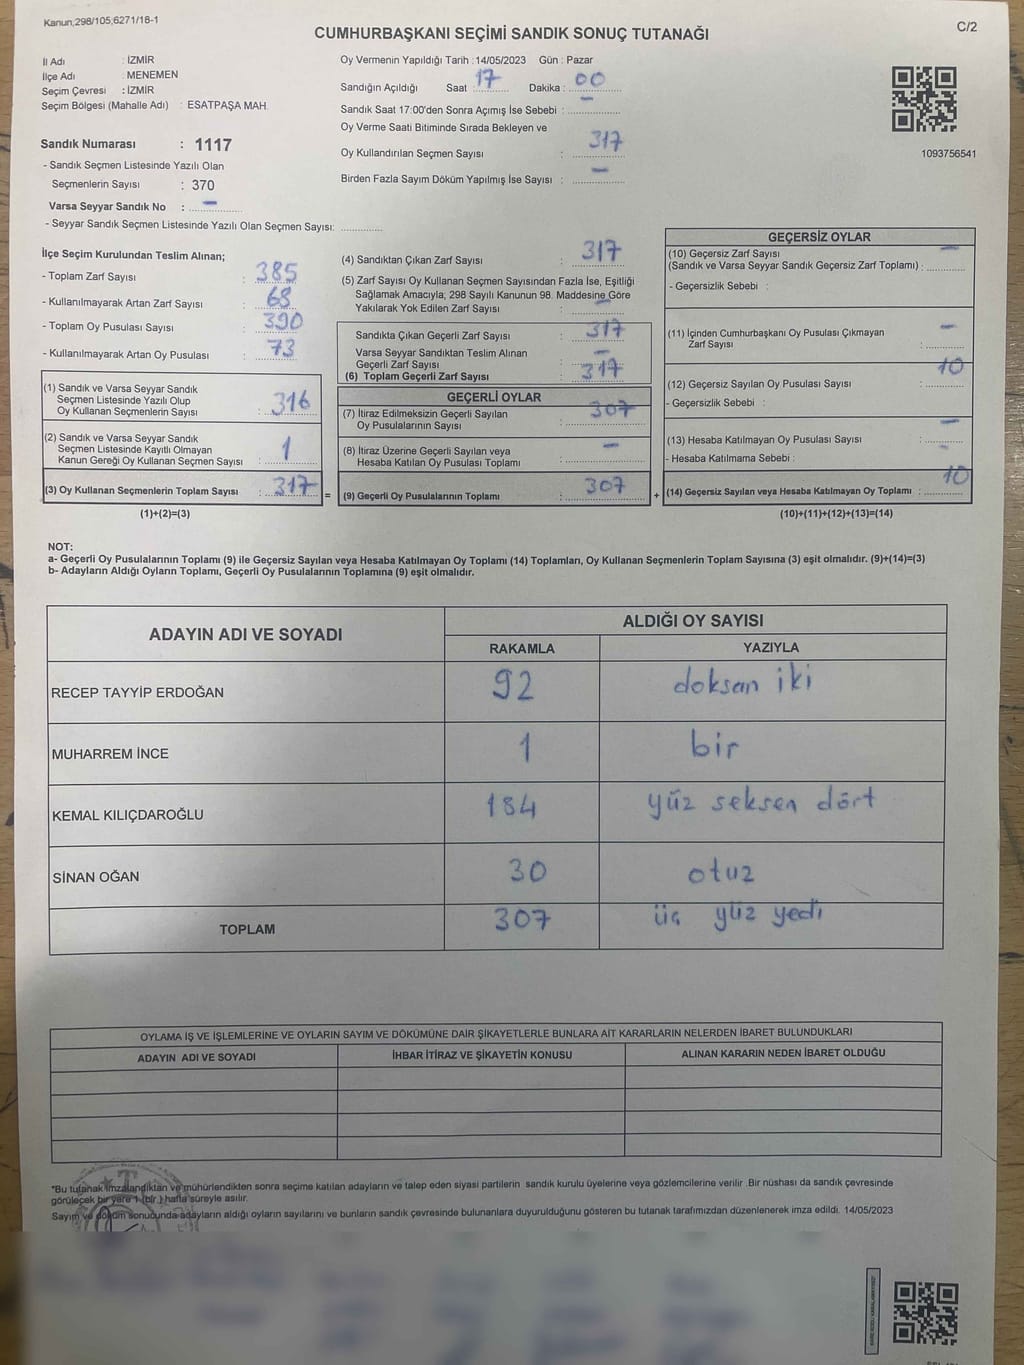 Kanun,298/105;6271/18-1
C/2
CUMHURBAŞKANI SEÇİMİ SANDIK SONUÇ TUTANAĞI
İl Adı : İZMİR
İlçe Adı : MENEMEN
Seçim Çevresi : İZMİR
Seçim Bölgesi (Mahalle Adı) : ESATPAŞA MAH.
Sandık Numarası : 1117
- Sandık Seçmen Listesinde Yazılı Olan
Seçmenlerin Sayısı : 370
Varsa Seyyar Sandık No : –
- Seyyar Sandık Seçmen Listesinde Yazılı Olan Seçmen Sayısı:
Oy Vermenin Yapıldığı Tarih : 14/05/2023 Gün : Pazar
Sandığın Açıldığı Saat : 17 Dakika : 00
Sandık Saat 17:00'den Sonra Açımış İse Sebebi : –
Oy Verme Saati Bitiminde Sırada Bekleyen ve
Oy Kullandırılan Seçmen Sayısı : 317
Birden Fazla Sayım Döküm Yapılmış İse Sayısı : –
1093756541
İlçe Seçim Kurulundan Teslim Alınan;
- Toplam Zarf Sayısı : 385
- Kullanılmayarak Artan Zarf Sayısı : 68
- Toplam Oy Pusulası Sayısı : 390
- Kullanılmayarak Artan Oy Pusulası : 73
(1) Sandık ve Varsa Seyyar Sandık
Seçmen Listesinde Yazılı Olup
Oy Kullanan Seçmenlerin Sayısı : 316
(2) Sandık ve Varsa Seyyar Sandık
Seçmen Listesinde Kayıtlı Olmayan
Kanun Gereği Oy Kullanan Seçmen Sayısı : 1
(3) Oy Kullanan Seçmenlerin Toplam Sayısı : 317
(1)+(2)=(3)
=
(4) Sandıktan Çıkan Zarf Sayısı : 317
(5) Zarf Sayısı Oy Kullanan Seçmen Sayısından Fazla İse, Eşitliği
Sağlamak Amacıyla; 298 Sayılı Kanunun 98. Maddesine Göre
Yakılarak Yok Edilen Zarf Sayısı : –
Sandıkta Çıkan Geçerli Zarf Sayısı : 317
Varsa Seyyar Sandıktan Teslim Alınan
Geçerli Zarf Sayısı : –
(6) Toplam Geçerli Zarf Sayısı : 317
GEÇERLİ OYLAR
(7) İtiraz Edilmeksizin Geçerli Sayılan
Oy Pusulalarının Sayısı : 307
(8) İtiraz Üzerine Geçerli Sayılan veya
Hesaba Katılan Oy Pusulası Toplamı : –
(9) Geçerli Oy Pusulalarının Toplamı : 307
+
GEÇERSİZ OYLAR
(10) Geçersiz Zarf Sayısı –
(Sandık ve Varsa Seyyar Sandık Geçersiz Zarf Toplamı) :
- Geçersizlik Sebebi :
(11) İçinden Cumhurbaşkanı Oy Pusulası Çıkmayan –
Zarf Sayısı :
(12) Geçersiz Sayılan Oy Pusulası Sayısı : 10
- Geçersizlik Sebebi :
(13) Hesaba Katılmayan Oy Pusulası Sayısı : –
- Hesaba Katılmama Sebebi : –
(14) Geçersiz Sayılan veya Hesaba Katılmayan Oy Toplamı : 10
(10)+(11)+(12)+(13)=(14)
NOT:
a- Geçerli Oy Pusulalarının Toplamı (9) ile Geçersiz Sayılan veya Hesaba Katılmayan Oy Toplamı (14) Toplamları, Oy Kullanan Seçmenlerin Toplam Sayısına (3) eşit olmalıdır. (9)+(14)=(3)
b- Adayların Aldığı Oyların Toplamı, Geçerli Oy Pusulalarının Toplamına (9) eşit olmalıdır.
ADAYIN ADI VE SOYADI
ALDIĞI OY SAYISI
RAKAMLA YAZIYLA
RECEP TAYYİP ERDOĞAN 92 doksan iki
MUHARREM İNCE 1 bir
KEMAL KILIÇDAROĞLU 184 yüz seksen dört
SİNAN OĞAN 30 otuz
TOPLAM 307 üç yüz yedi
OYLAMA İŞ VE İŞLEMLERİNE VE OYLARIN SAYIM VE DÖKÜMÜNE DAİR ŞİKAYETLERLE BUNLARA AİT KARARLARIN NELERDEN İBARET BULUNDUKLARI
ADAYIN ADI VE SOYADI İHBAR İTİRAZ VE ŞİKAYETİN KONUSU ALINAN KARARIN NEDEN İBARET OLDUĞU
*Bu tutanak imzalandıktan ve mühürlendikten sonra seçime katılan adayların ve talep eden siyasi partilerin sandık kurulu üyelerine veya gözlemcilerine verilir .Bir nüshası da sandık çevresinde
görülecek bir yere 1 (bir ) hafta süreyle asılır.
Sayım ve döküm sonucunda adayların aldığı oyların sayılarını ve bunların sandık çevresinde bulunanlara duyurulduğunu gösteren bu tutanak tarafımızdan düzenlenerek imza edildi. 14/05/2023